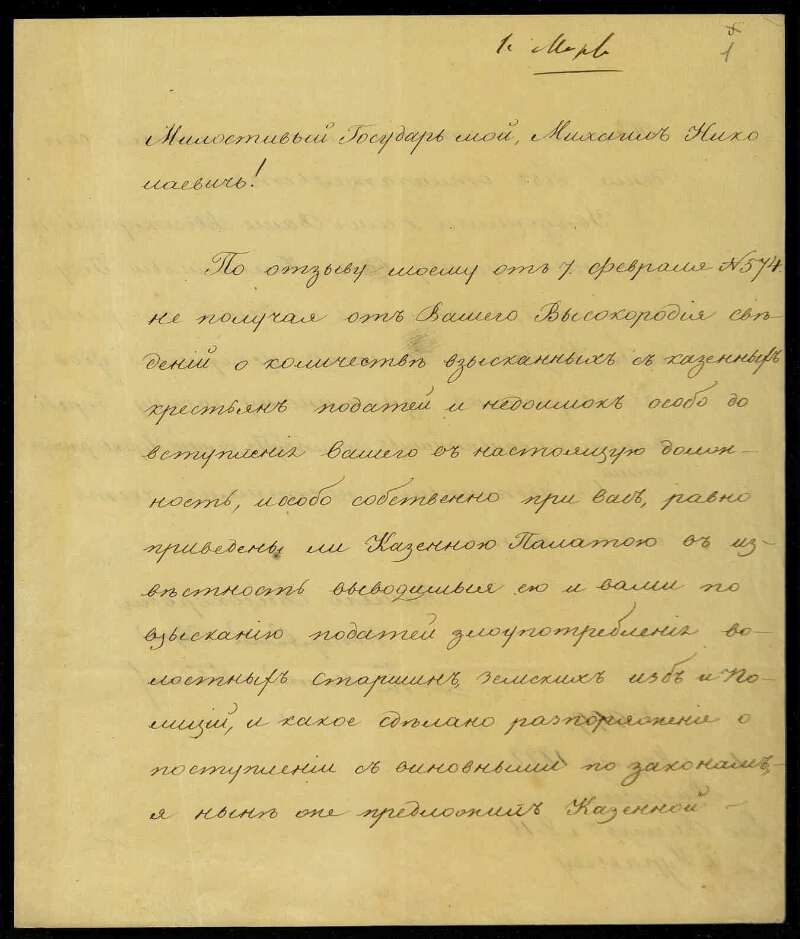 1
Милостивый Государь мой, Михаилъ Нико
лаевичь!
По отзыву моему отъ 7. февраля №574.
не получая отъ Вашего Высокородія свѣ-
деній о количествѣ взысканныхъ съ казенныхъ
крестьянъ податей и недоимокъ особо до
вступленія вашего въ настоящую долж-
ность, и особо собственно при васъ, равно
приведены ли Казенною Палатою въ из-
вѣстность выводимыя ею и вами по
взысканію податей злоупотребленія во-
лостныхъ старшинъ, земскихъ избъ и По-
лицій, и какое сдѣлано разпоряженіе о
поступленіи съ виновными по законамъ,
я нынѣ же предложилъ Казенной -